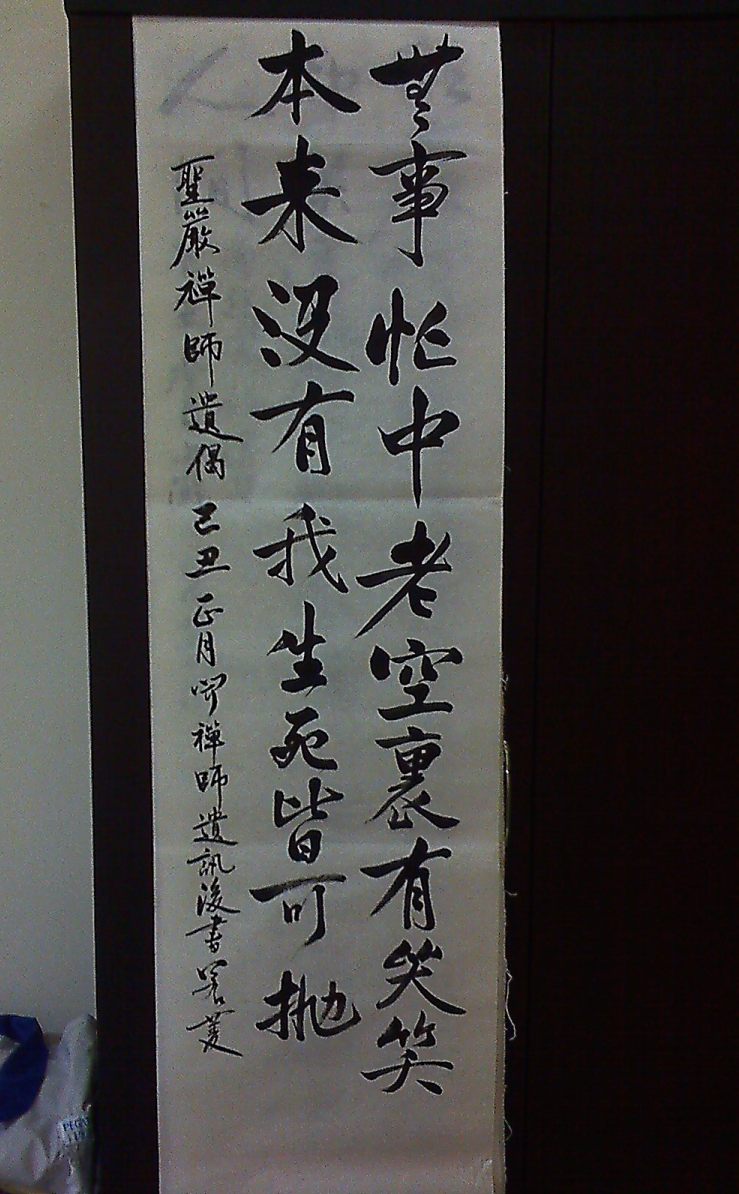 無事忙中老空裏有哭笑
本来没有我生死皆可拋
聖嚴禪師遺偈 己丑正月聞禪師遺訊後書